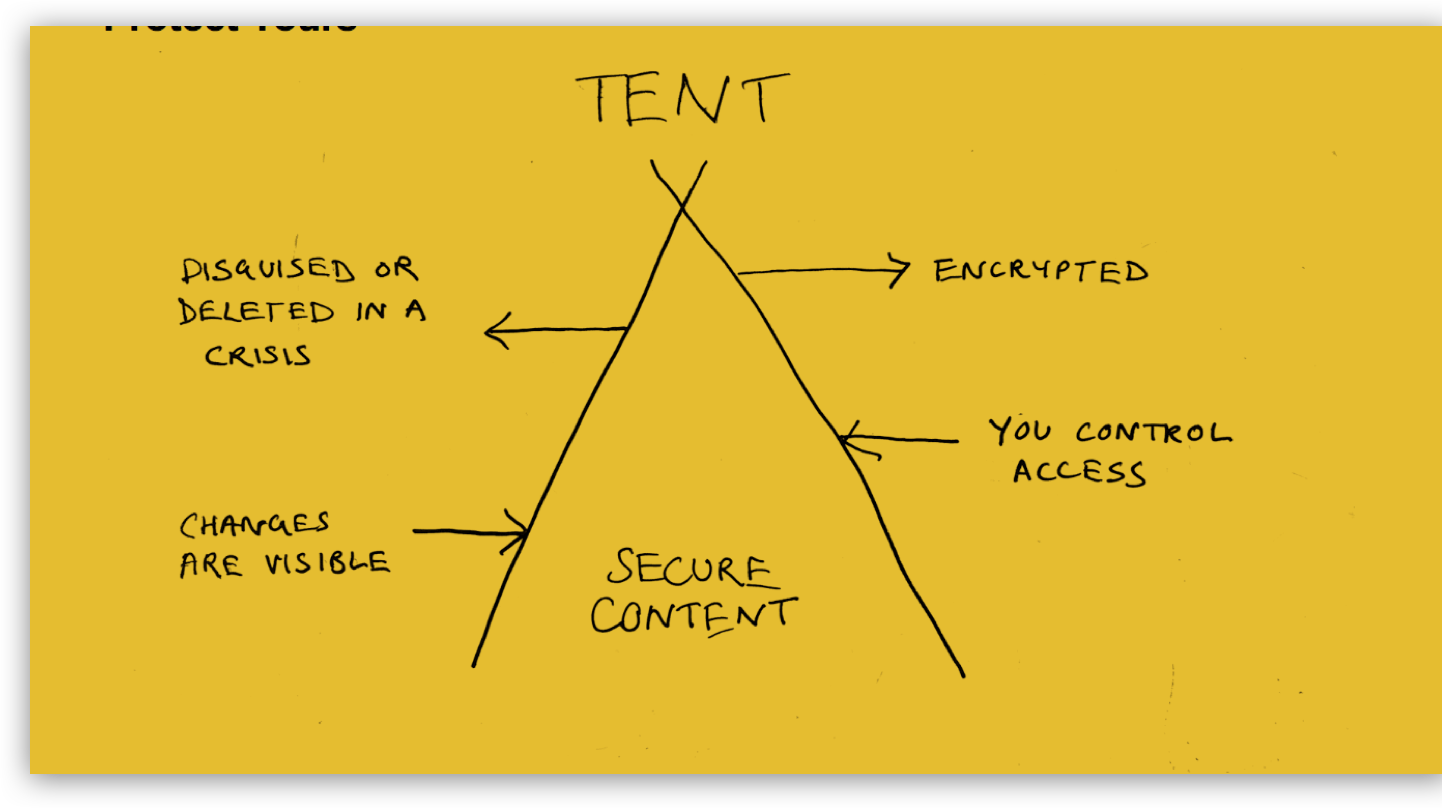 Protect Yours
TENT
DISGUISED OR
DELETED IN A
CRISIS
ENCRYPTED
YOU CONTROL
ACCESS
CHANGES
ARE VISIBLE
SECURE
CONTENT